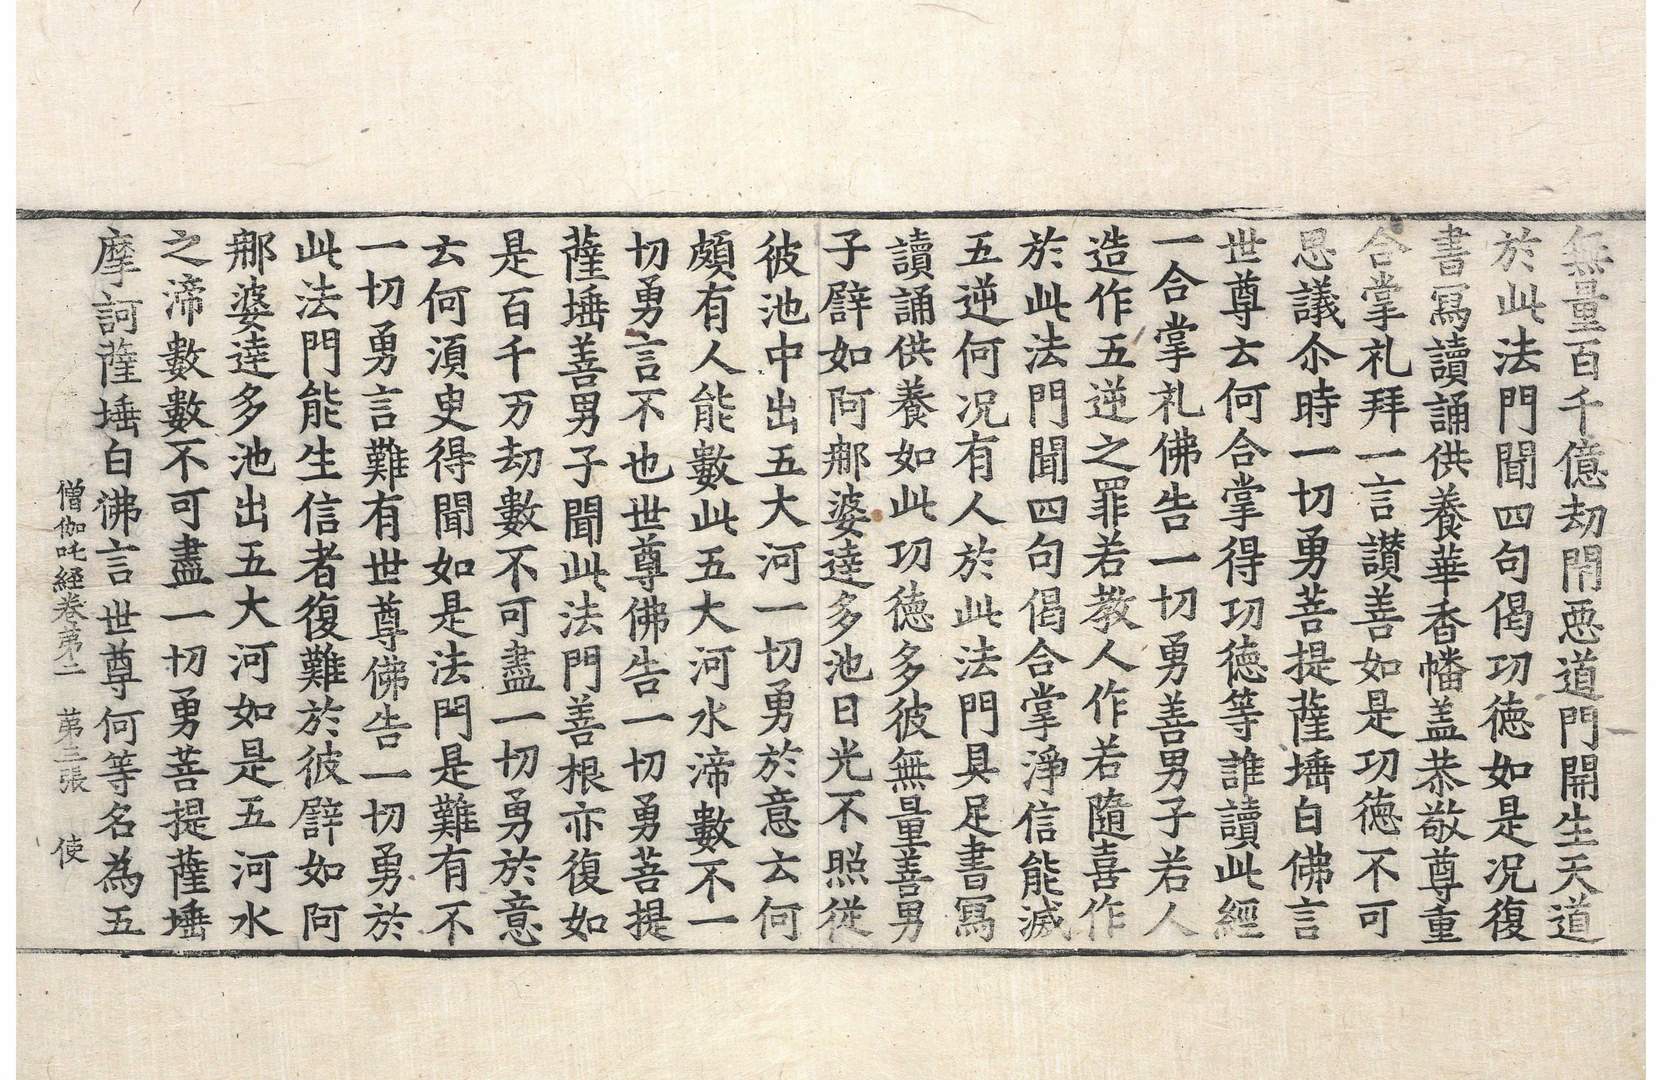 無量百千億劫閇惡道門開生天道
於此法門聞四句偈功德如是况復
書寫讀誦供養華香幡盖恭敬尊重
合掌礼拜一言讃善如是功德不可
思議尒時一切勇菩提薩埵白佛言
世尊云何合掌得功德等誰讀此經
一合掌礼佛告一切勇善男子若人
造作五逆之罪若教人作若隨喜作
於此法門聞四句偈合掌淨信能滅
五逆何况有人於此法門具足書寫
讀誦供養如此功德多彼無量善男
子譬如阿那婆達多池日光不照從
彼池中出五大河一切勇於意云何
頗有人能數此五大河水渧數不一
切勇言不也世尊佛告一切勇菩提
薩埵善男子聞此法門善根亦復如
是百千万劫數不可盡一切勇於意
云何須臾得聞如是法門是難有不
一切勇言難有世尊佛告一切勇於
此法門能生信者復難於彼譬如阿
那婆達多池出五大河如是五河水
之渧數數不可盡一切勇菩提薩埵
摩訶薩埵白佛言世尊何等名為五
僧伽吒経卷苐二 苐三張 使